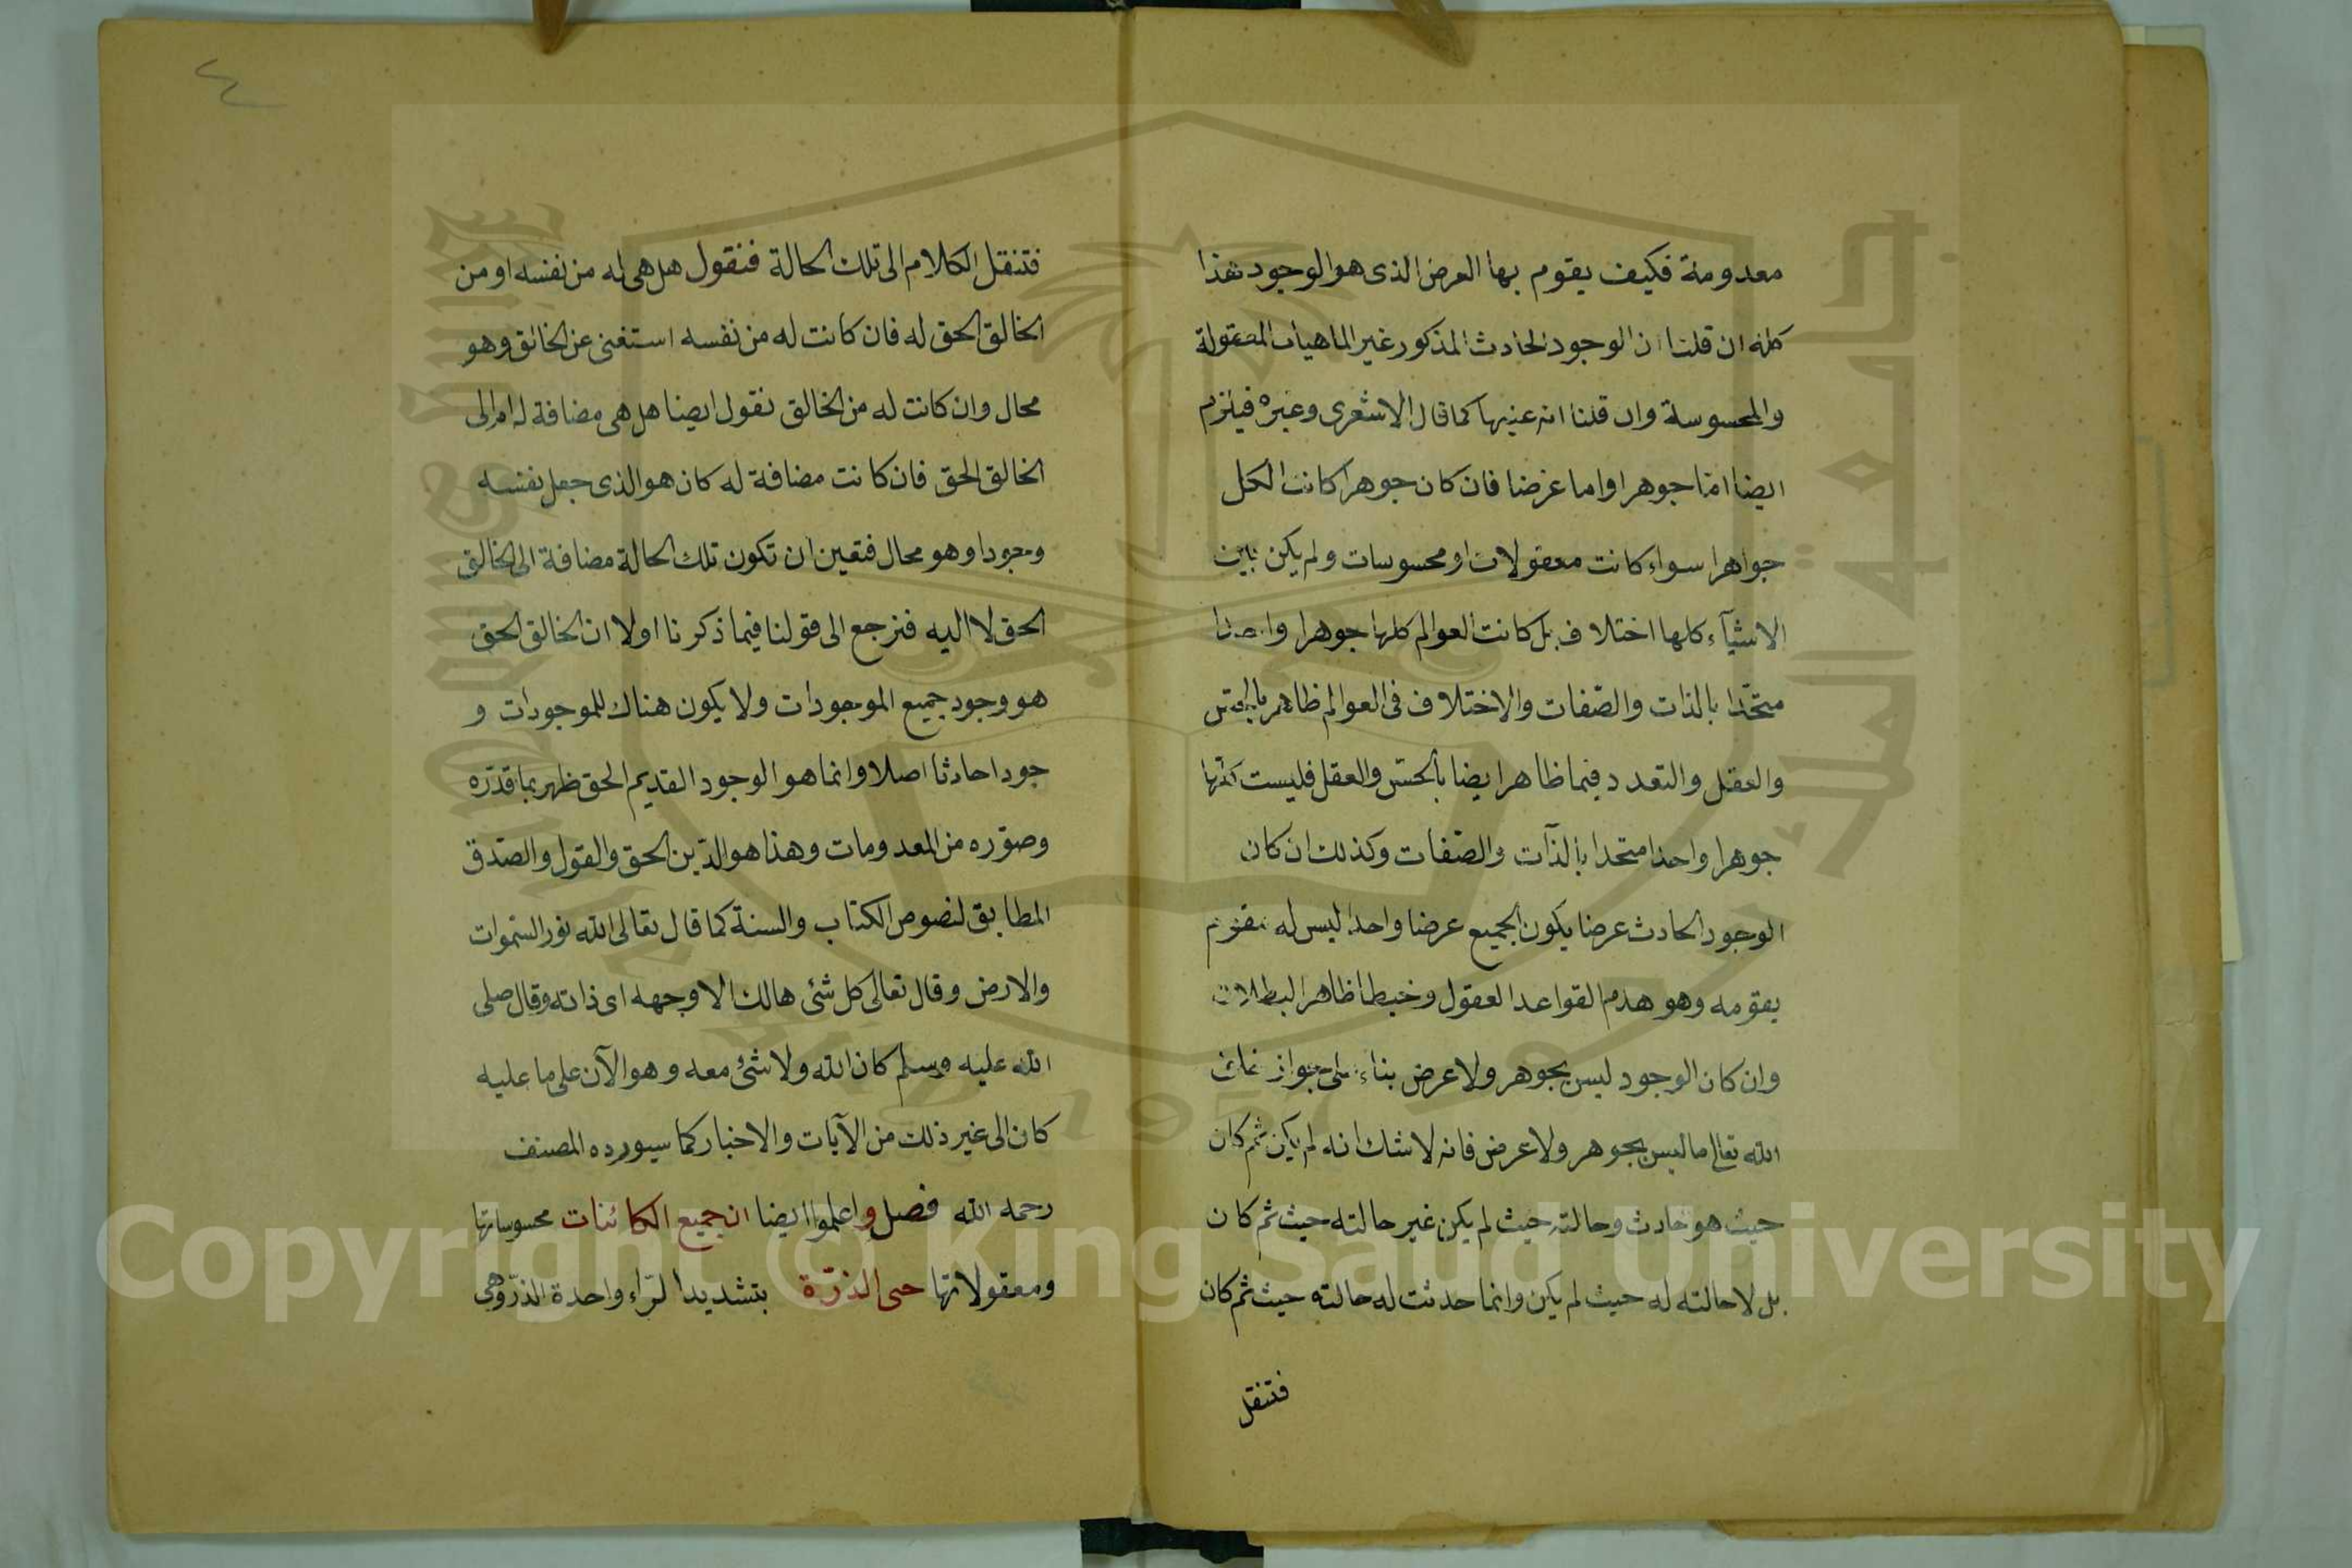 معدومة فكيف يقوم بها العرض الذى هو الوجود هذا
كله ان قلنا ان الوجود الحادث المذكور غير الماهيات المعقولة
والمحسوسة وان قلنا انه عينها كما قال الاشعرى وغيره فيلزم
ايضا اما جوهرا واما عرضا فان كان جوهرا كانت الكل
جواهرا سواء كانت معقولات او محسوسات ولم يكن بين
الاشيآء كلها اختلاف بل كانت العوالم كلها جوهرا واحدا
متحّدا بالذات والصّفات والاختلاف فى العوالم ظاهر بالحسّ
والعقل والتعدد فيما ظاهر ايضا بالحسّ والعقل فليست كلها
جوهرا واحدا متحدا بالذآت والصّفات وكذلك ان كان
الوجود الحادث عرضا يكون الجميع عرضا واحدا ليس له مقوّم
يقومه وهو هدم القواعد العقول وخبط ظاهر البطلان
وان كان الوجود ليس بجوهر ولا عرض بناء على جواز خلق
الله تعالى ما ليس بجوهر ولا عرض فانه لا شك انه لم يكن ثم كان
حيث هو حادث وحالته حيث لم يكن غير حالته حيث ثم كان
بل لا حالته له حيث لم يكن وانما حدثت له حالته حيث ثم كان
فتنقل
٤
فتنقل الكلام الى تلك الحالة فنقول هل هى له من نفسه او من
الخالق الحق له فان كانت له من نفسه استغنى عن الخالق وهو
محال وان كانت له من الخالق نقول ايضا هل هى مضافة له ام الى
الخالق الحق فان كانت مضافة له كان هو الذى جعل نفسه
وجودا وهو محال فتعين ان تكون تلك الحالة مضافة الى الخالق
الحق لا اليه فنرجع الى قولنا فيما ذكرنا اولا ان الخالق الحق
هو وجود جميع الموجودات ولا يكون هناك للموجودات و
جودا حادثا اصلا وانما هو الوجود القديم الحق ظهر بما قدّره
وصوّره من المعدومات وهذا هو الدّين الحق والقول والصّدق
المطابق لنصوص الكتاب والسنة كما قال تعالى الله نور السّموات
والارض وقال تعالى كل شئ هالك الا وجهه اى ذاته وقال صلى
الله عليه وسلم كان الله ولا شئ معه وهو الآن على ما عليه
كان الى غير ذلك من الآيات والاخبار كما سيورده المصنف
رحمه الله فصل واعلموا ايضا ان جميع الكائنات محسوساتها
ومعقولاتها حتى الذرّة بتشديد الرّاء واحدة الذرّ وهى
Copyright © King Saud University
جامعة الملك سعود
King Saud University
1957